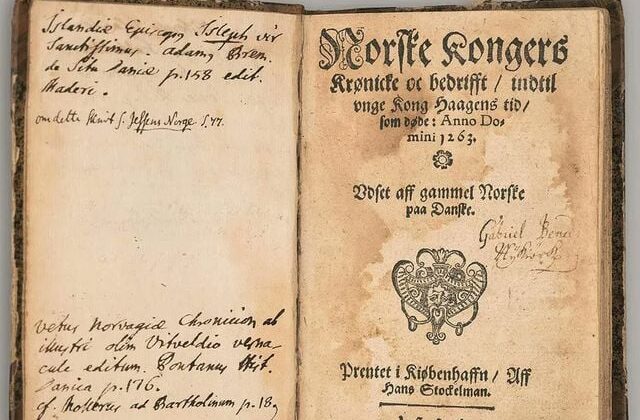 Islandiæ Episcopus Isleph vir
Sanctissimus. Adamus Brem.
de Situ Daniæ p. 158 edit.
Maderi.
om dette skrift s. Jessens Norge S. 77.
vetus Norvagiæ Chronicon ab
illustri olim Vitveldio verna-
cule editum. Pontanus Hist.
Danica p. 176.
cf. Mollerus ad Bartholinum p. 18,
Norske Kongers
Krønicke oc bedrifft / indtil
vnge Kong Haagens tid /
som døde: Anno Do-
mini 1263.
Vdset aff gammel Norske
paa Danske.
Gabriel
Prentet i Kiøbenhaffn / Aff
Hans Stockelman.